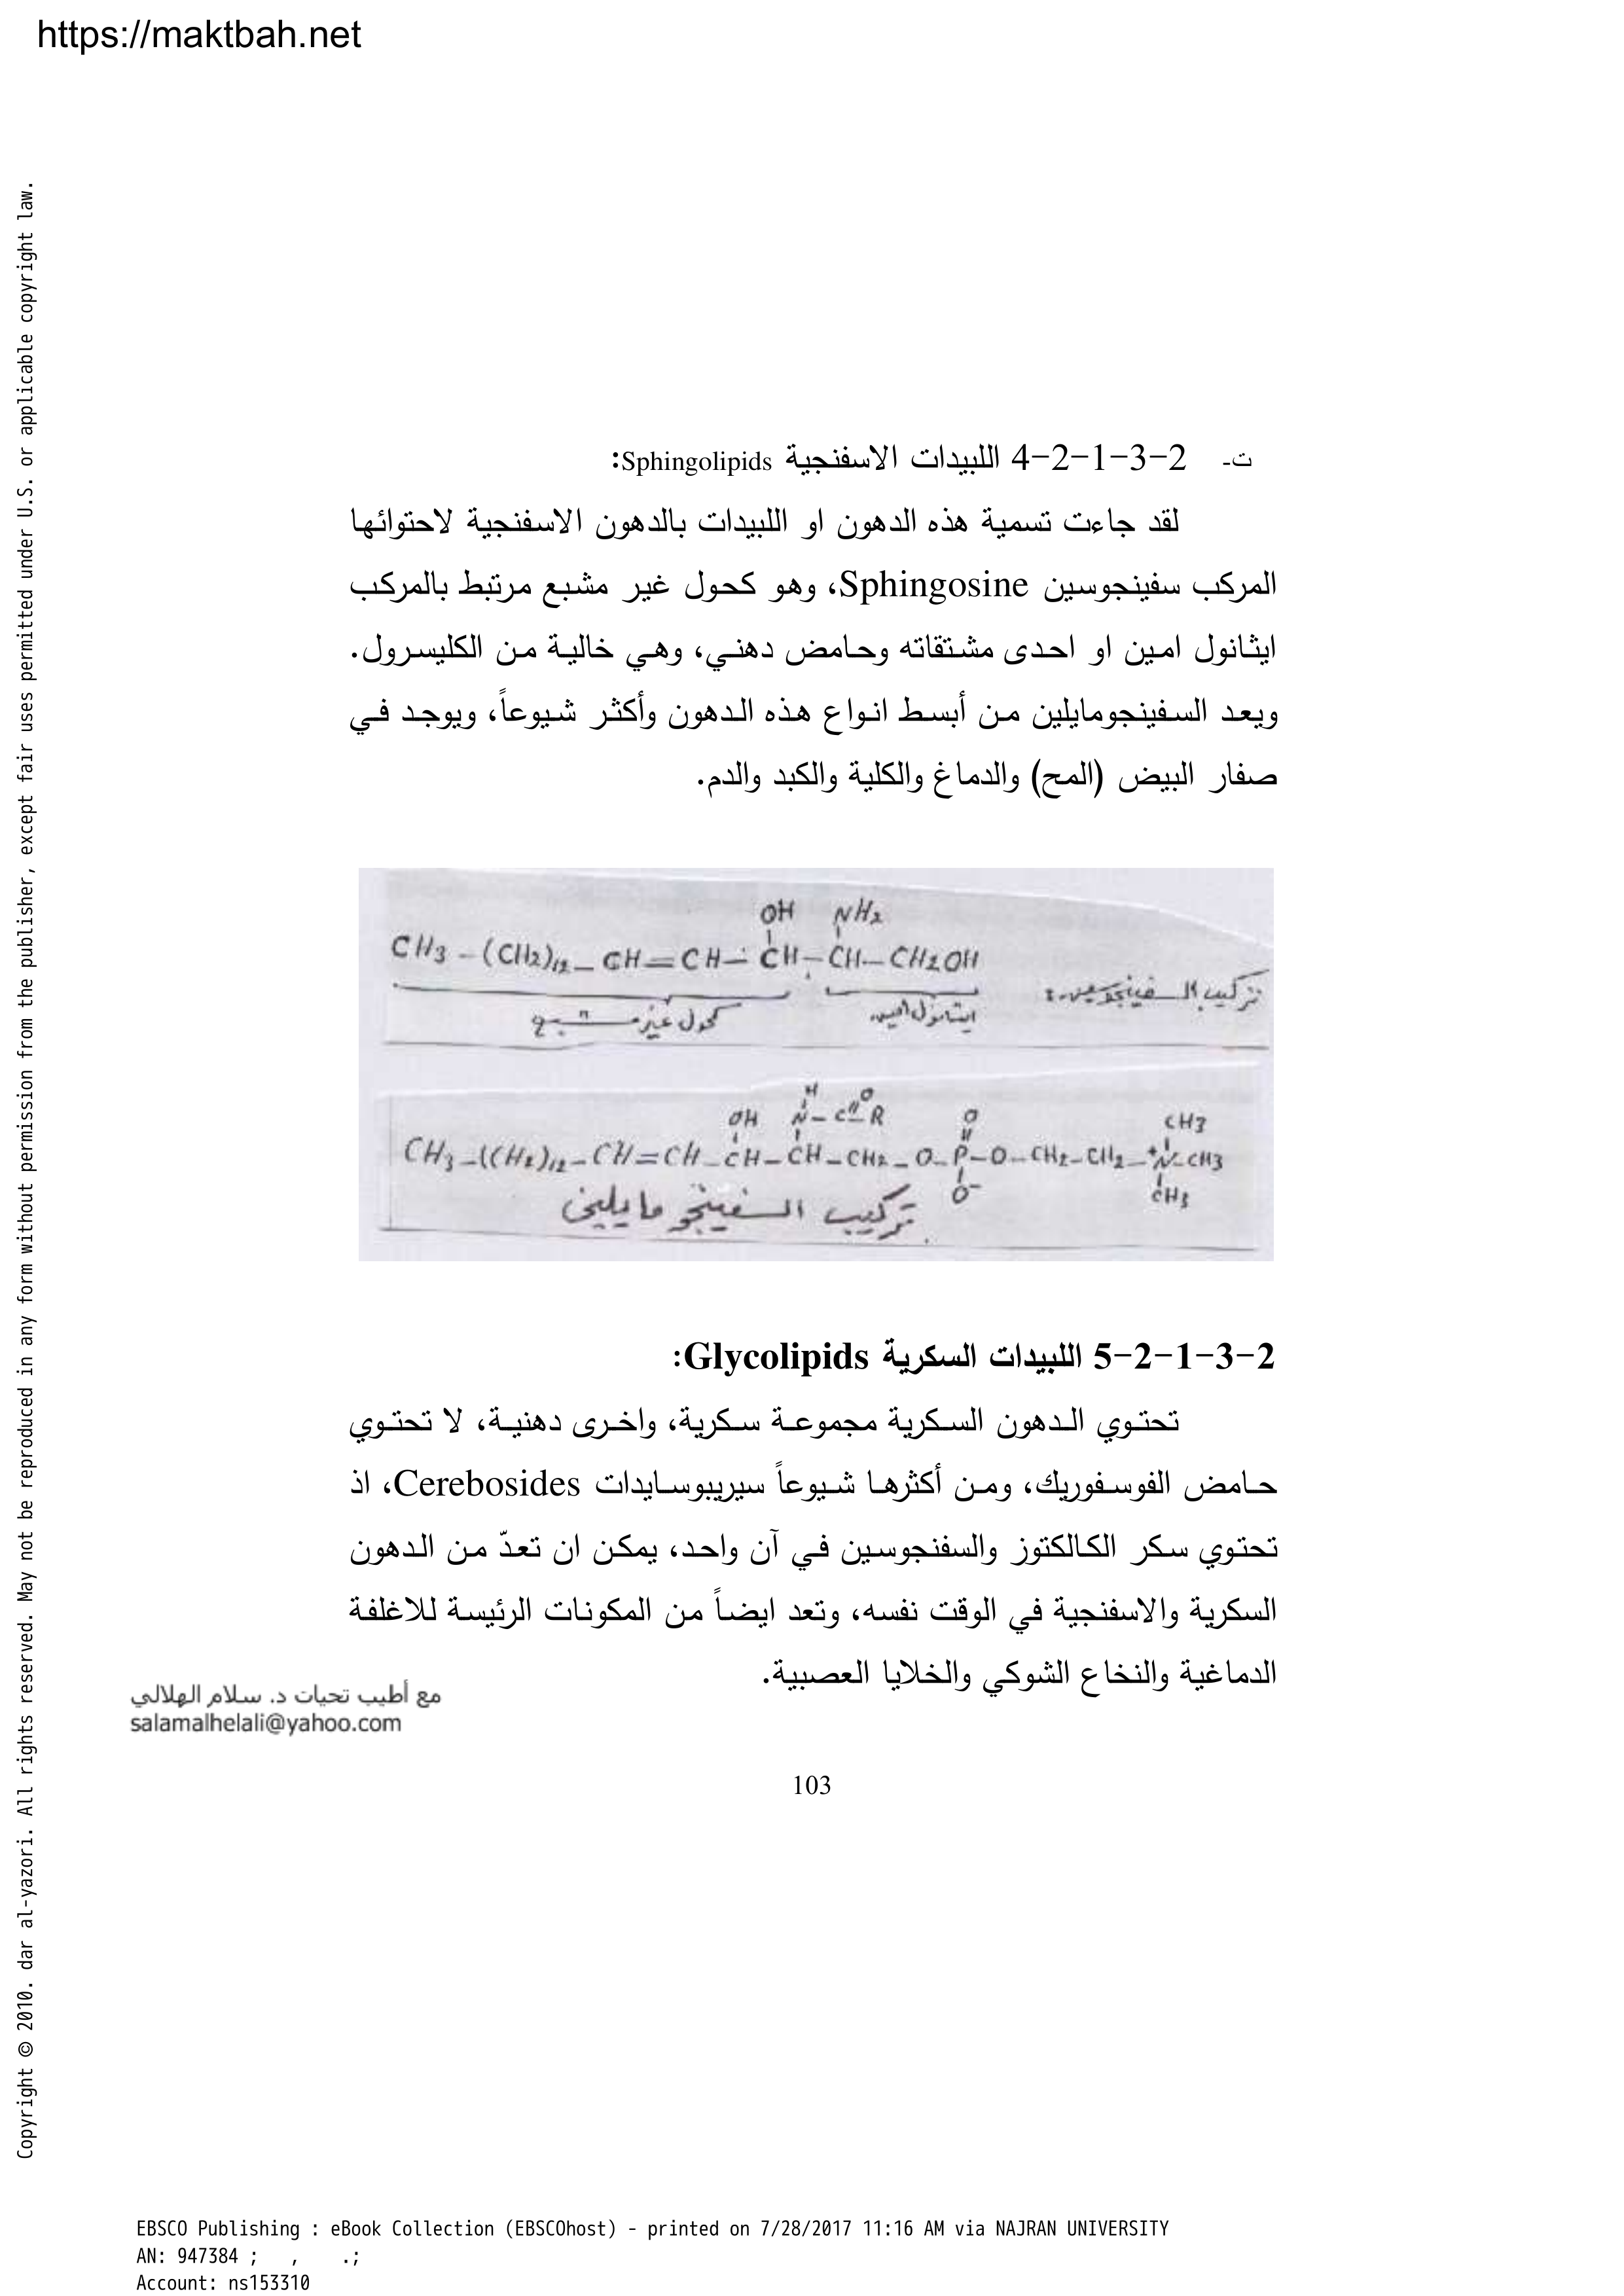 https://maktbah.net
Copyright © 2010. dar al-yazori. All rights reserved. May not be reproduced in any form without permission from the publisher, except fair uses permitted under U.S. or applicable copyright law.
ت- 2-3-1-2-4 اللبيدات الاسفنجية Sphingolipids:
لقد جاءت تسمية هذه الدهون او اللبيدات بالدهون الاسفنجية لاحتوائها
المركب سفينجوسين Sphingosine، وهو كحول غير مشبع مرتبط بالمركب
ايثانول امين او احدى مشتقاته وحامض دهني، وهي خالية من الكليسرول.
ويعد السفينجومايلين من أبسط انواع هذه الدهون وأكثر شيوعاً، ويوجد في
صفار البيض (المح) والدماغ والكلية والكبد والدم.
OH NH2
CH3 – (CH2)12 – CH = CH – CH – CH – CH2OH
تركيب السفينجوسين:
كحول غير مشبع ايثانول امين
H O
OH N – C = R O CH3
CH3 – (CH2)12 – CH = CH – CH – CH – CH2 – O – P – O – CH2 – CH2 – +N – CH3
O- CH3
تركيب السفينجو مايلين
2-3-1-2-5 اللبيدات السكرية Glycolipids:
تحتوي الدهون السكرية مجموعة سكرية، واخرى دهنية، لا تحتوي
حامض الفوسفوريك، ومن أكثرها شيوعاً سيريبوسايدات Cerebosides، اذ
تحتوي سكر الكالكتوز والسفنجوسين في آن واحد، يمكن ان تعدّ من الدهون
السكرية والاسفنجية في الوقت نفسه، وتعد ايضاً من المكونات الرئيسة للاغلفة
الدماغية والنخاع الشوكي والخلايا العصبية.
مع أطيب تحيات د. سلام الهلالي
salamalhelali@yahoo.com
103
EBSCO Publishing : eBook Collection (EBSCOhost) - printed on 7/28/2017 11:16 AM via NAJRAN UNIVERSITY
AN: 947384 ; , .;
Account: ns153310